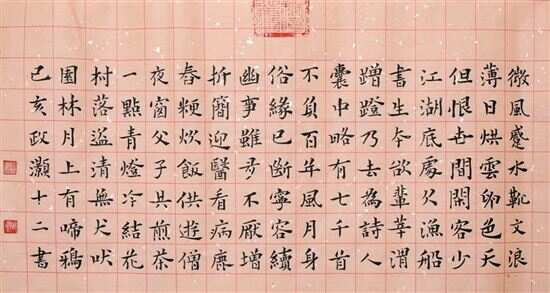 微風蹙水靴文浪
薄日烘雲卵色天
但恨世間閑客少
江湖底處欠漁船
書生本欲輩莘渭
蹭蹬乃去為詩人
囊中略有七千首
不負百年風月身
俗緣已斷寧容續
幽事雖多不厭增
折簡迎醫看病鹿
舂粳炊飯供遊僧
夜窗父子共煎茶
一點青燈冷結花
村落盜清無犬吠
園林月上有啼鴉
己亥政灝十二書